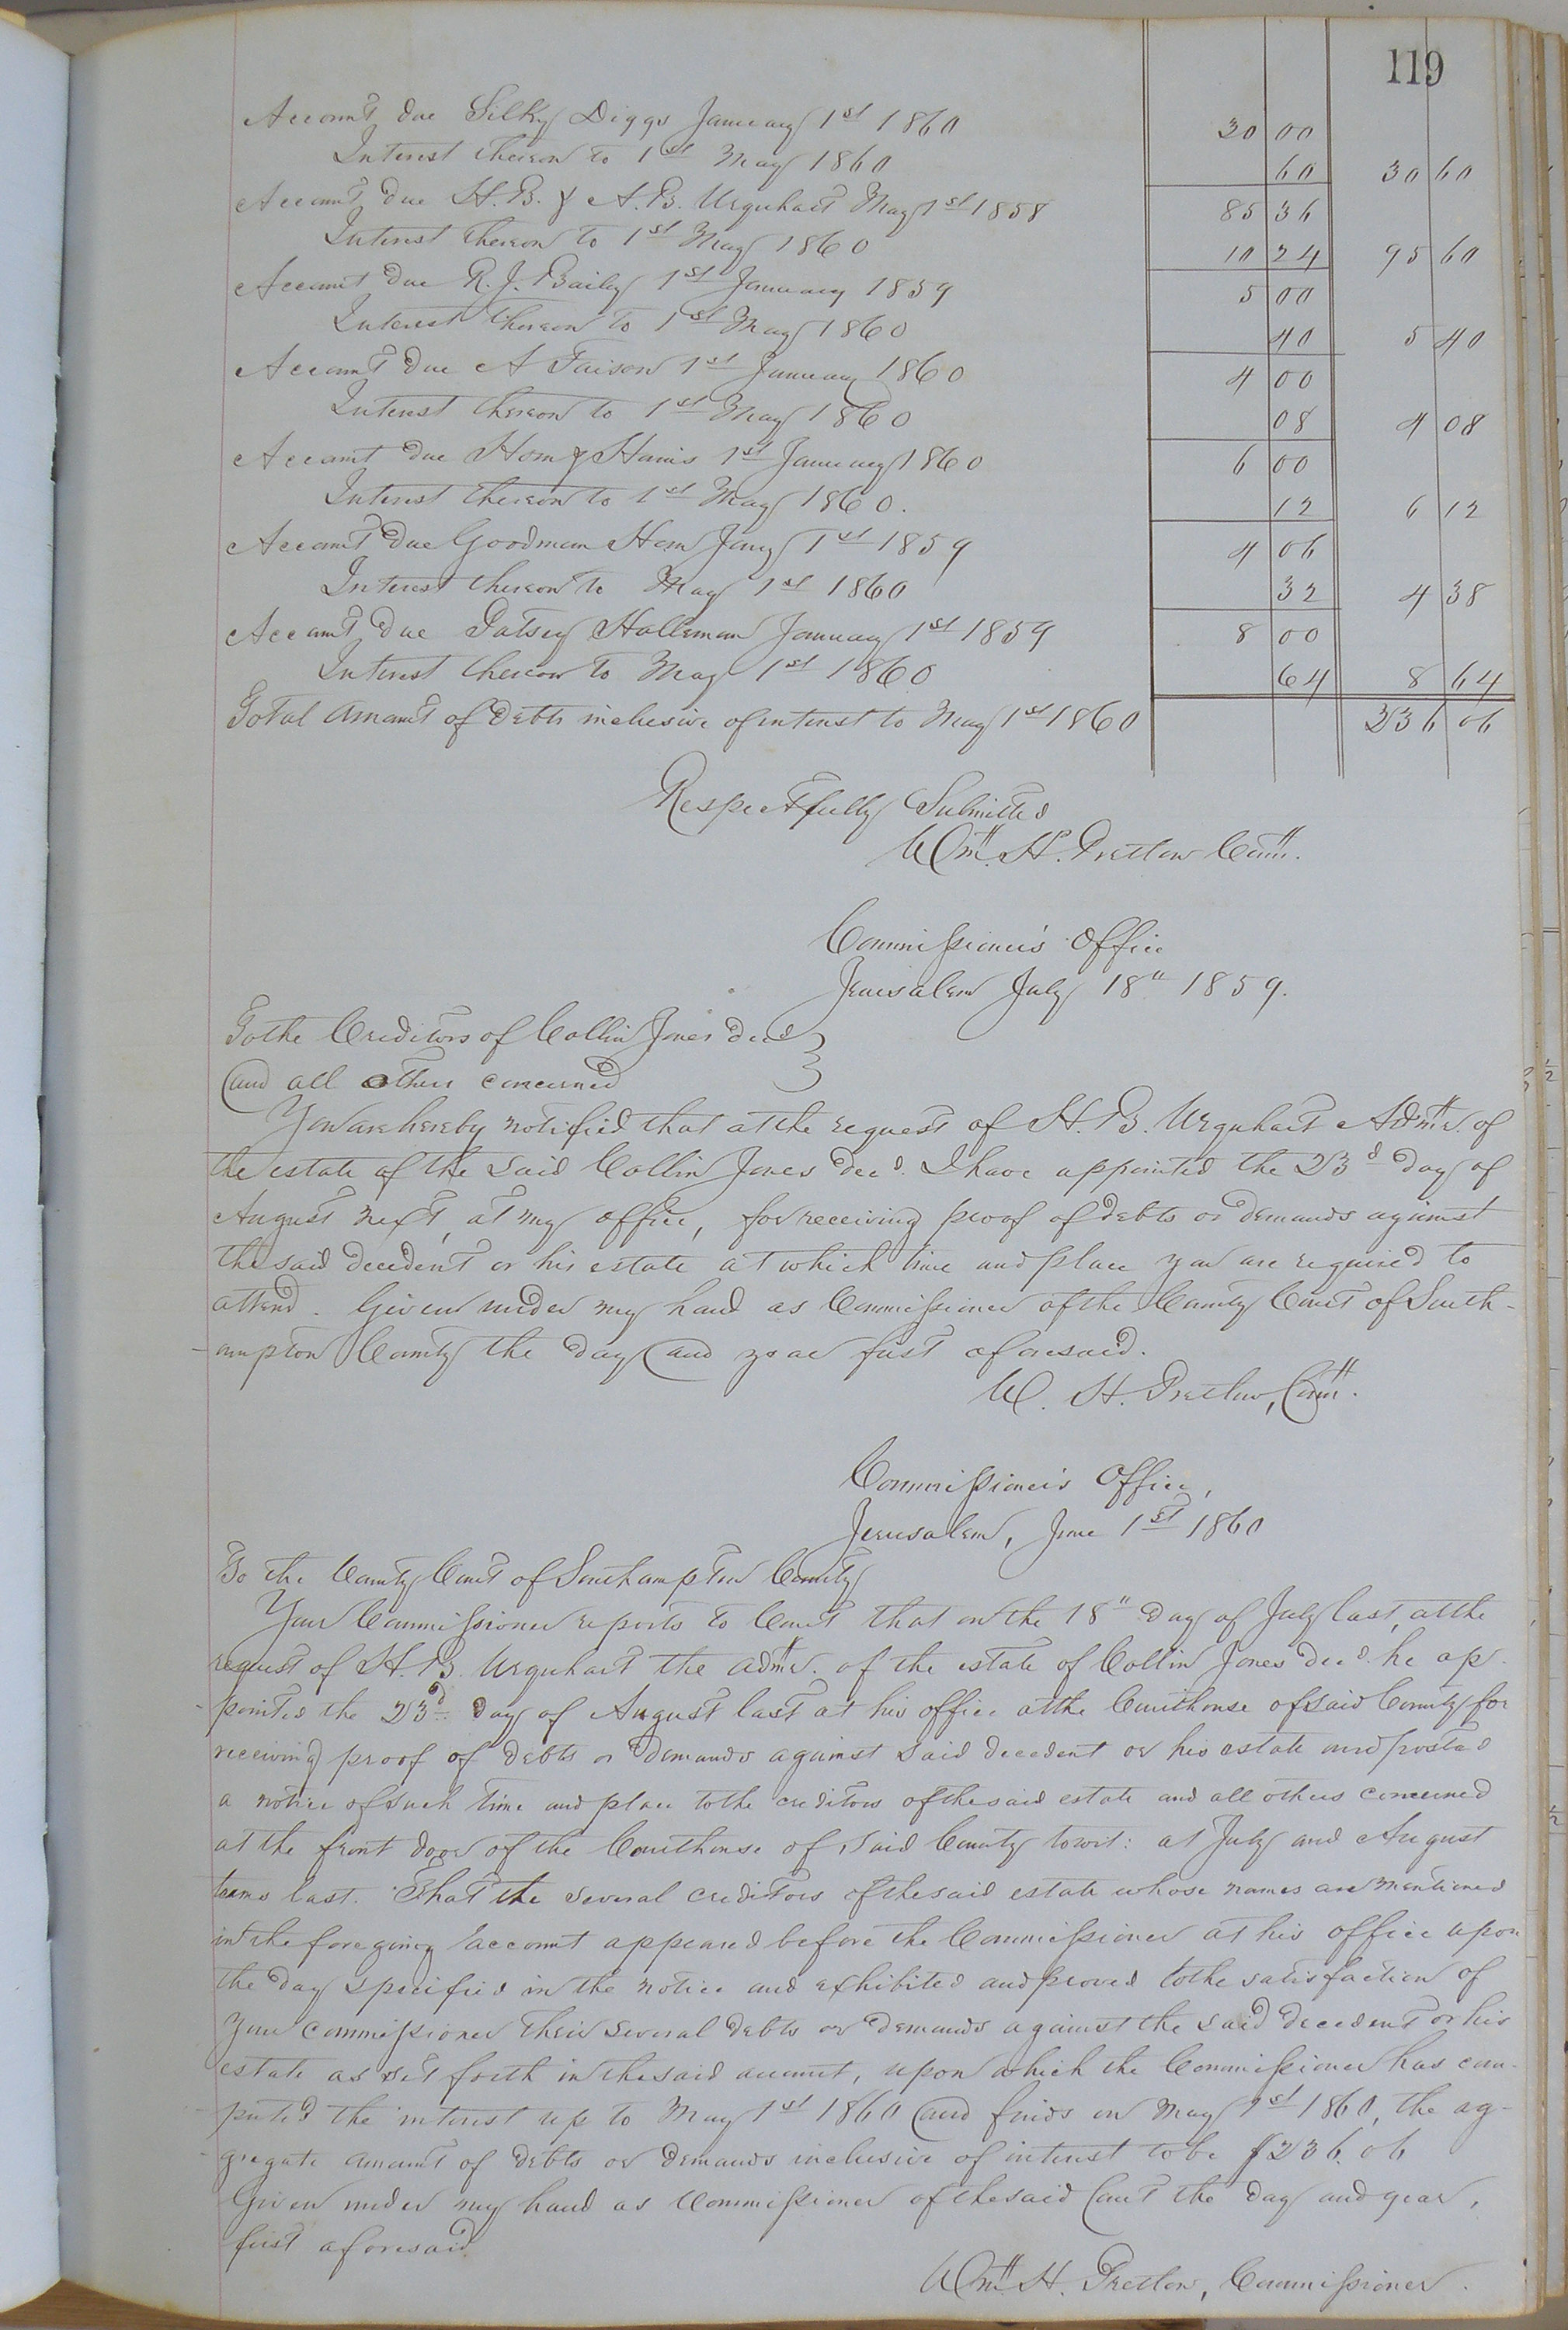 119
Account due Silky Diggs January 1st 1860 30 00
Interest thereon to 1st May 1860 60 30 60
Account due H. B. & A. B. Urquhart May 1st 1858 85 36
Interest thereon to 1st May 1860 10 24 95 60
Account due R. J. Baily 1st January 1859 5 00
Interest thereon to 1st May 1860 40 5 40
Account due A Faison 1st January 1860 4 00
Interest thereon to 1st May 1860 08 4 08
Account due Horn & Harris 1st January 1860 6 00
Interest thereon to 1st May 1860. 12 6 12
Account due Goodman Horn Jany 1st 1859 4 06
Interest thereon to May 1st 1860 32 4 38
Account due Patsey Holleman January 1st 1859 8 00
Interest thereon to May 1st 1860 64 8 64
Total amount of debts inclusive of interest to May 1st 1860 236 06
Respectfully Submitted
Wm. H. Pretlow Com.
Commissioner's Office
Jerusalem July 18" 1859.
To the Creditors of Collin Jones decd
and all others concerned
You are hereby notified that at the request of H. B. Urquhart Admr. of
the estate of the said Collin Jones decd. I have appointed the 23d day of
August next, at my office, for receiving proof of debts or demands against
the said decedent or his estate at which time and place you are required to
attend. Given under my hand as Commissioner of the County Court of South-
ampton County the day and year first aforesaid.
W. H. Pretlow, Com.
Commissioner's Office,
Jerusalem, June 1st 1860
To the County Court of Southampton County
Your Commissioner reports to Court that on the 18" day of July last, at the
request of H. B. Urquhart the admr. of the estate of Collin Jones decd. he ap-
pointed the 23d day of August last at his office at the Courthouse of said County for
receiving proof of debts or demands against said decedent or his estate and posted
a notice of such time and place to the creditors of the said estate and all others concerned
at the front door of the Courthouse of said County towit: at July and August
terms last. That the several creditors of the said estate whose names are mentioned
in the foregoing account appeared before the Commissioner at his office upon
the day specified in the notice and exhibited and proved to the satisfaction of
your commissioner their several debts or demands against the said decedent or his
estate as set forth in the said account, upon which the Commissioner has com-
puted the interest up to May 1st 1860 and finds on May 1st 1860, the ag-
gregate amount of debts or demands inclusive of interest to be $236.06
Given under my hand as Commissioner of the said Court the day and year,
first aforesaid
Wm. H. Pretlow, Commissioner.